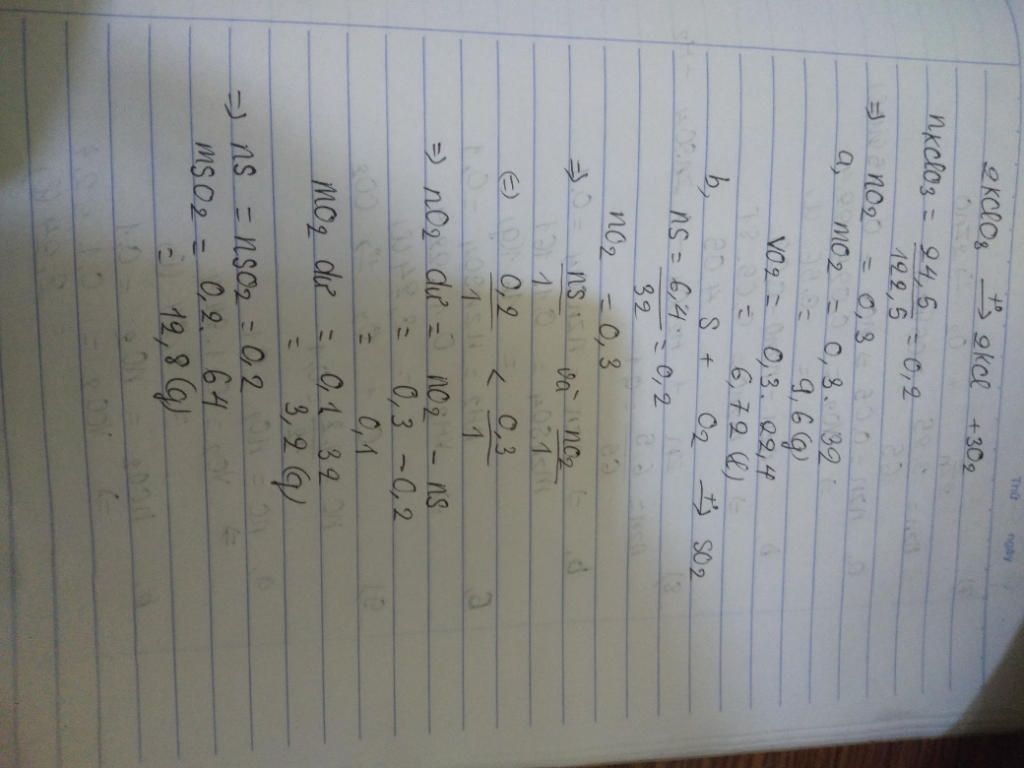 Thứ ngày
2KClO3 t°→ 2KCl + 3O2
nKClO3 = 24,5/122,5 = 0,2
=) nO2 = 0,3
a, mO2 = 0,3. 32
= 9,6 (g)
VO2 = 0,3. 22,4
= 6,72 (l)
b, S + O2 t°→ SO2
nS = 6,4/32 = 0,2
nO2 = 0,3
=) nS/1 và nO2/1
(=) 0,2/1 < 0,3/1
=) nO2 dư = nO2 - nS
= 0,3 - 0,2
= 0,1
mO2 dư = 0,1. 32
= 3,2 (g)
=) nS = nSO2 = 0,2
mSO2 = 0,2. 64
= 12,8 (g)